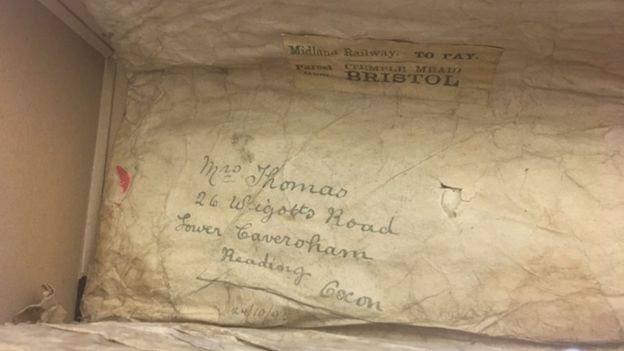 Midland Railway. TO PAY.
Parcel from (TEMPLE MEAD)
BRISTOL
Mrs Thomas
26 Wigotts Road
Lower Caversham
Reading
Oxon